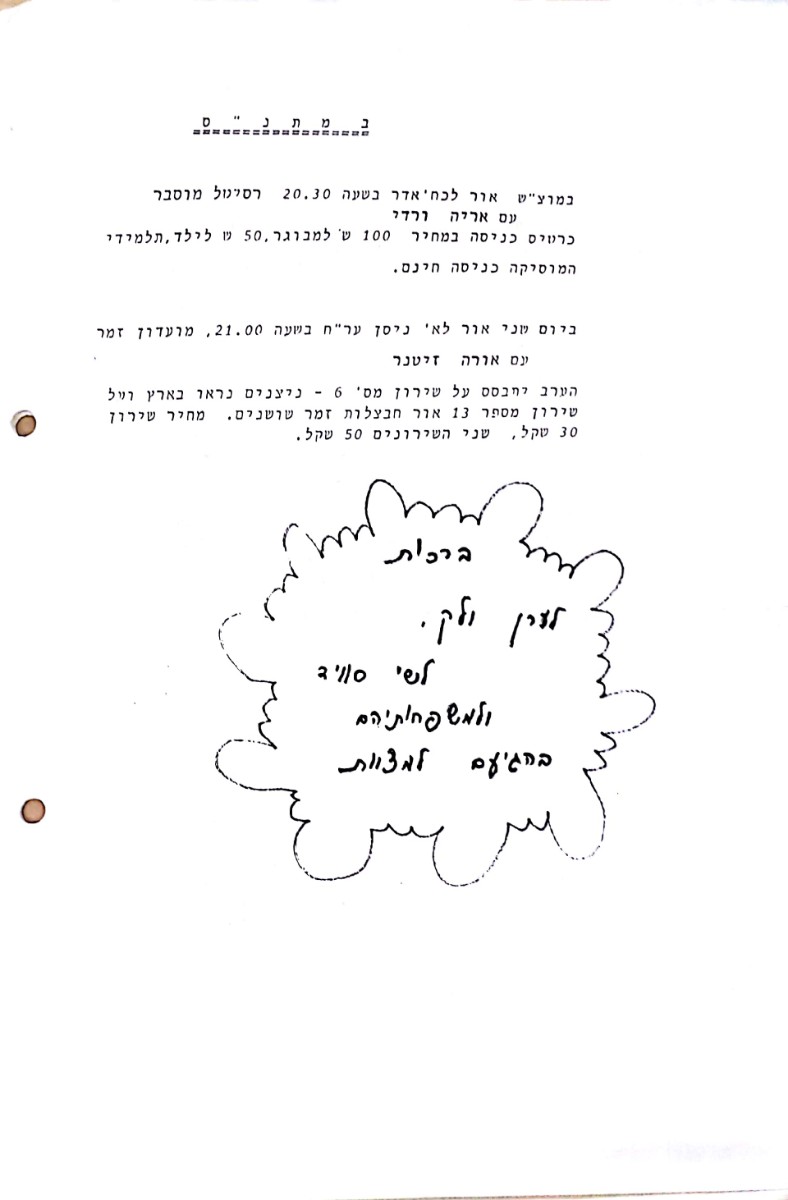 ב מ ת נ " ס
במוצ"ש אור לכח'אדר בשעה 20.30 רסיטל מוסבר
עם אריה ורדי
כרטיס כניסה במחיר 100 ש' למבוגר,50 ש לילד,תלמידי
המוסיקה כניסה חינם.
ביום שני אור לא' ניסן ער"ח בשעה 21.00, מועדון זמר
עם אורה זיטנר
הערב יתבסס על שירון מס' 6 - ניצנים נראו בארץ ועל
שירון מספר 13 אור חבצלות זמר שושנים. מחיר שירון
30 שקל, שני השירונים 50 שקל.
ברכות
לערן ולק.
לשי סוויד
ולמשפחותיהם
בהגיעם למצוות